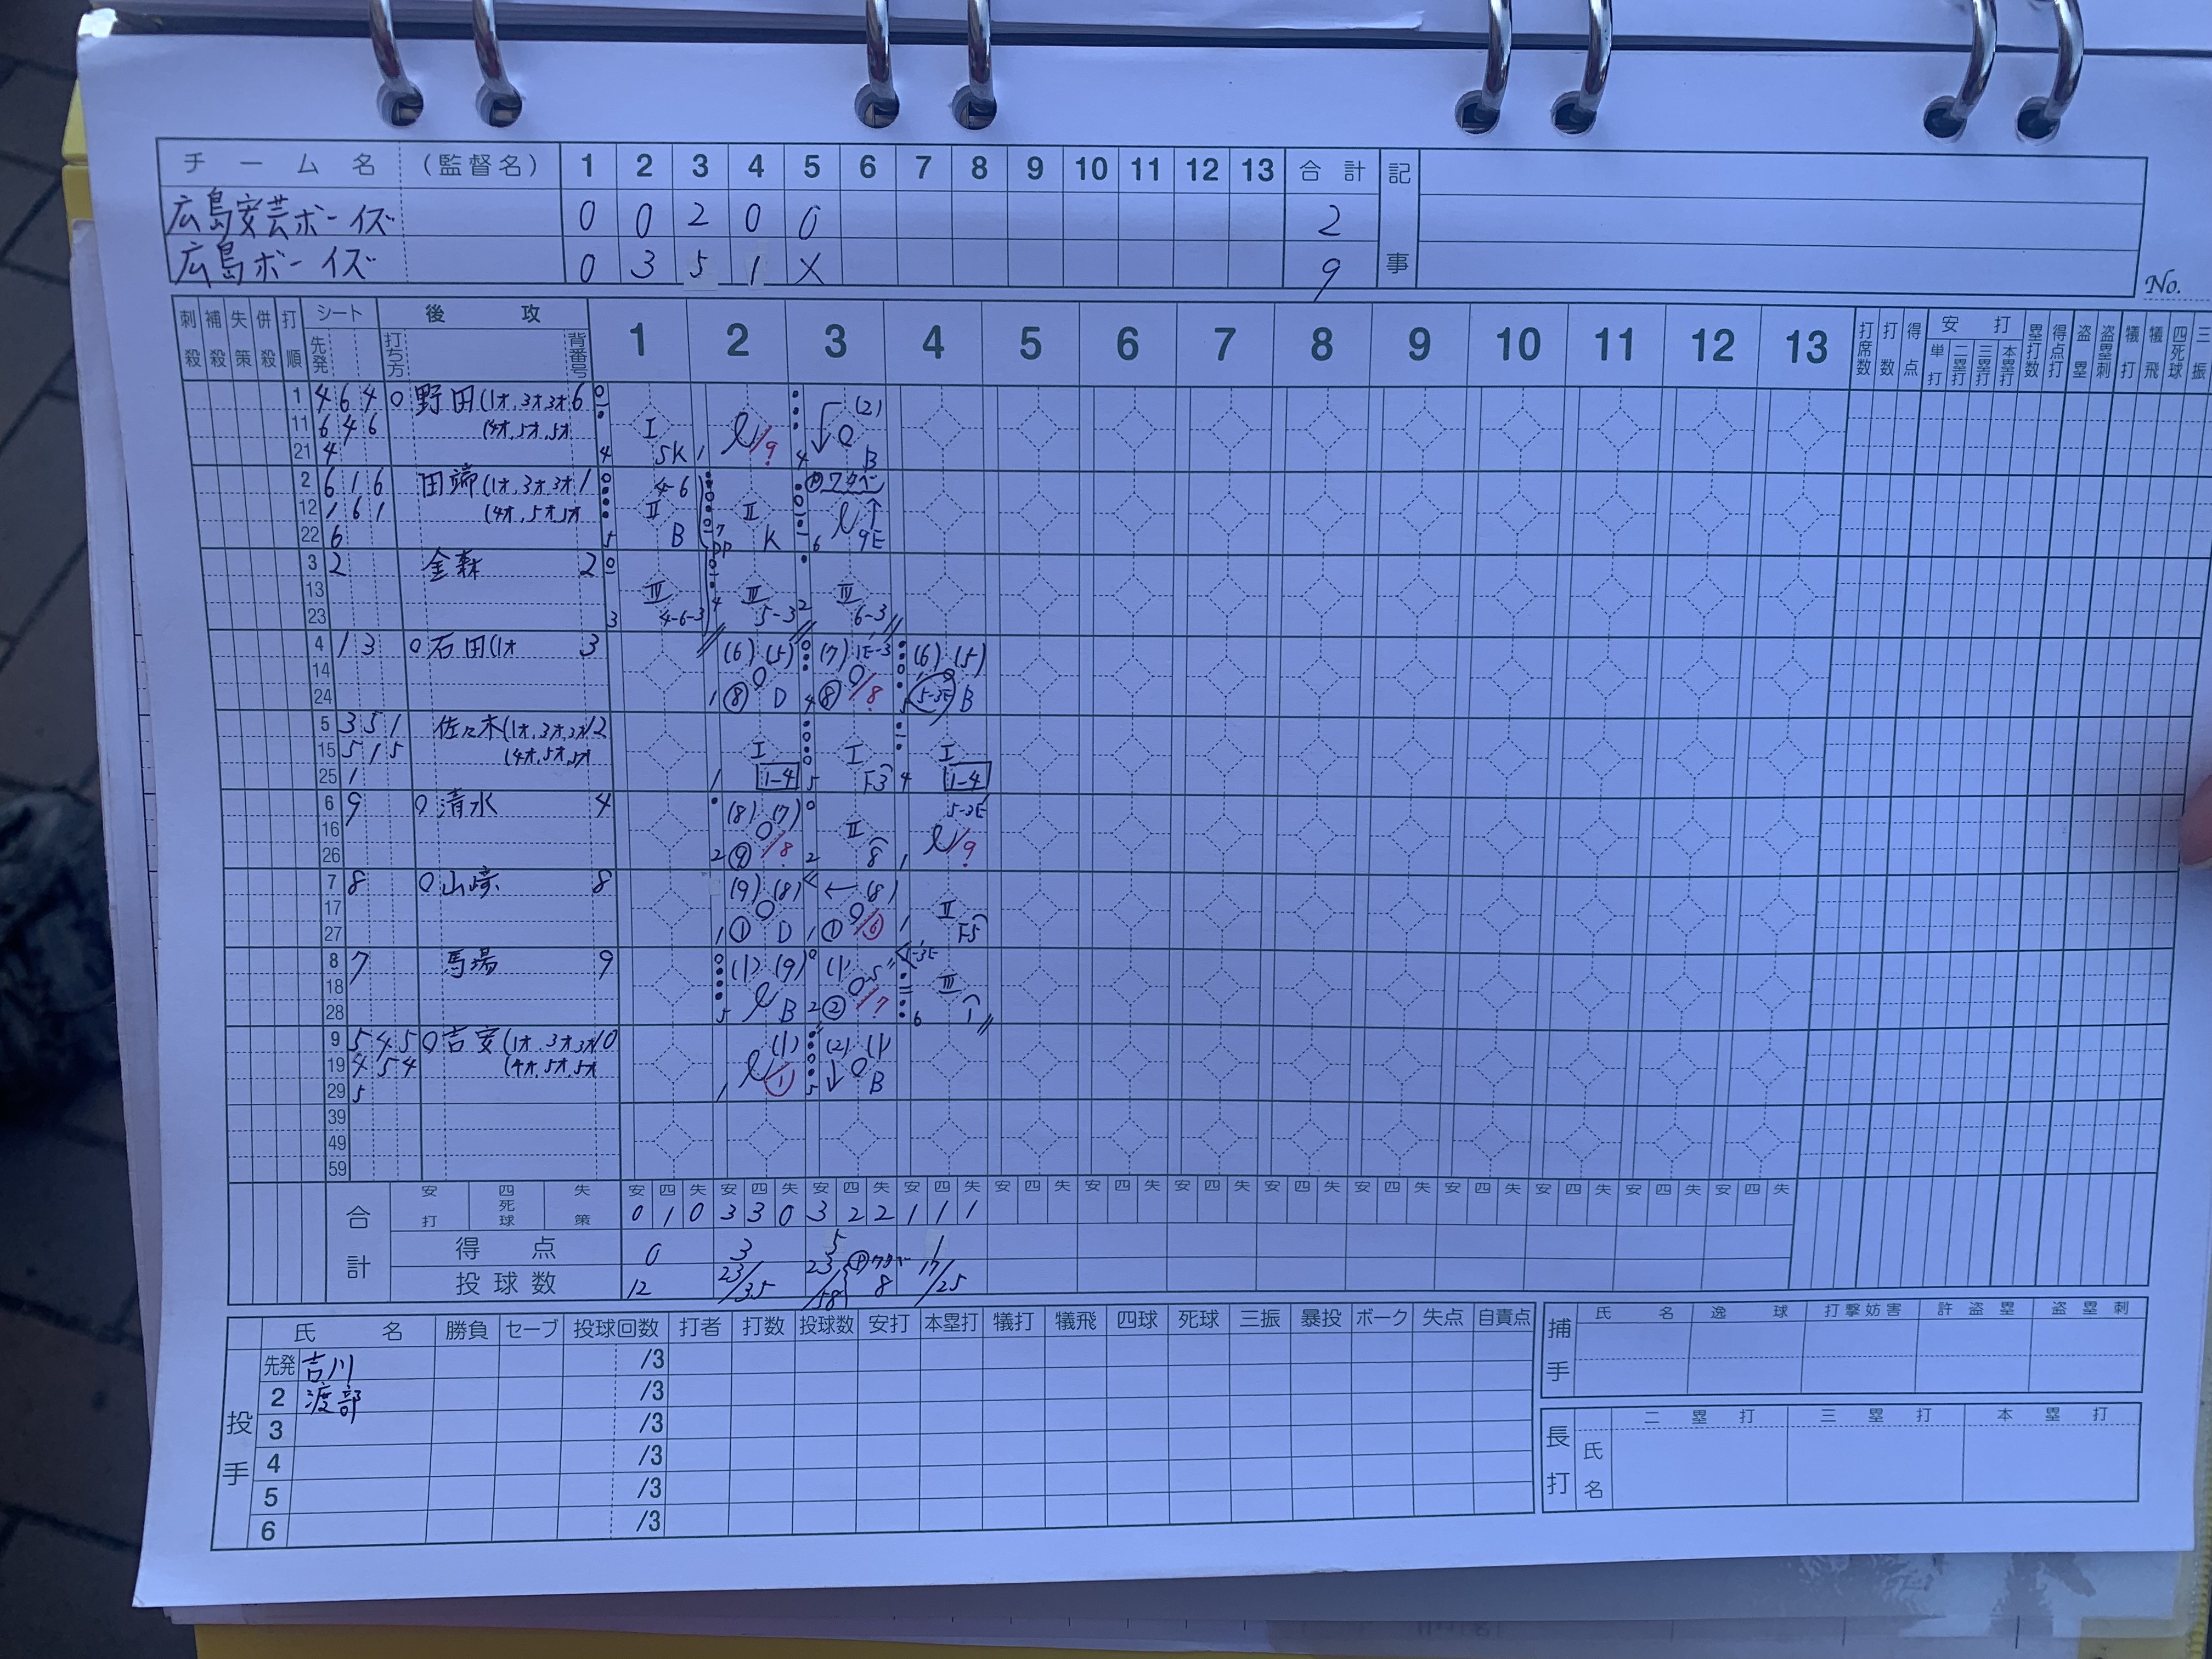 チーム名 (監督名) 1 2 3 4 5 6 7 8 9 10 11 12 13 合計 記事
広島安芸ボーイズ 0 0 2 0 0 2
広島ボーイズ 0 3 5 1 X 9
No.
刺殺 補殺 失策 併殺 打順 シート 先発 後攻 打ち方 背番号 1 2 3 4 5 6 7 8 9 10 11 12 13 打席数 打数 得点 安打 単打 二塁打 三塁打 本塁打 塁打数 得点打 盗塁 盗塁刺 犠打 犠飛 四死球 三振
1 4 6 4 野田 (1オ, 3オ, 3オ 6 I SK ℓ/9 (2) B
11 6 4 6 (4オ, 5オ, 5オ
21 4
2 6 1 6 田端 (1オ, 3オ, 3オ 1 4-6 II B II K ℓ 9E
12 1 6 1 (4オ, 5オ, 5オ
22 6
3 2 金森 2 III 4-6-3 III 5-3 III 6-3
13
23
4 1 3 石田 (1オ 3 (6) (5) ⑧ D (7) 1E-3 ⑧ /8 (6) (5) 5-3E B
14
24
5 3 5 1 佐々木 (1オ, 3オ, 3オ 12 I 1-4 I F3 I 1-4
15 5 1 5 (4オ, 5オ, 5オ
25 1
6 9 清水 4 (8) (7) ⑨ /8 II 8 5-3E ℓ/9
16
26
7 8 山﨑 8 (9) (8) ① D (8) ① /⑥ II F5
17
27
8 7 馬場 9 (1) (9) ℓ B (1) ② /7 III 1
18
28
9 5 4 5 吉安 (1オ, 3オ, 3オ 10 (1) ℓ ① (2) (1) B
19 4 5 4 (4オ, 5オ, 5オ
29 5
39
49
59
合計 安打 四死球 失策 安 四 失 安 四 失 安 四 失 安 四 失 安 四 失 安 四 失 安 四 失 安 四 失 安 四 失 安 四 失 安 四 失 安 四 失 安 四 失
0 1 0 3 3 0 3 2 2 1 1 1
得点 0 3 5 1
投球数 12 23/35 23/58 8 17/25
投手 氏名 勝負 セーブ 投球回数 打者 打数 投球数 安打 本塁打 犠打 犠飛 四球 死球 三振 暴投 ボーク 失点 自責点
先発 吉川 /3
2 渡部 /3
3 /3
4 /3
5 /3
6 /3
捕手 氏名 逸球 打撃妨害 許盗塁 盗塁刺
長打 氏名 二塁打 三塁打 本塁打